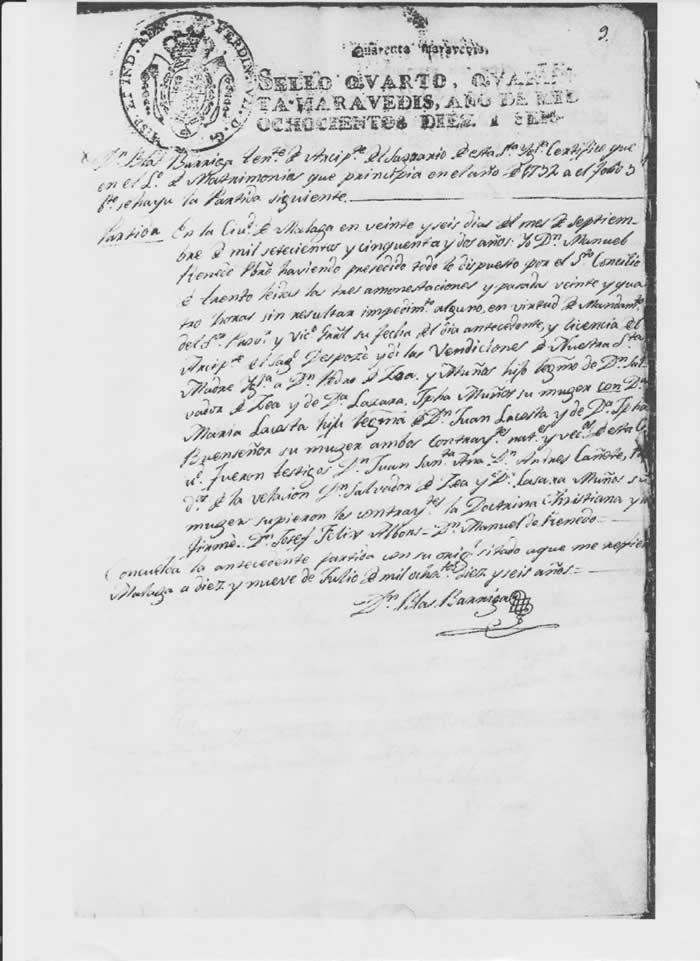 9
Quarenta maravedis.
HISP. ET IND. REX FERDIN. VII. D. G.
SELLO QVARTO, QVAREN
TA MARAVEDIS, AÑO DE MIL
OCHOCIENTOS DIEZ Y SEIS
Dn. Blas Barriga tente. de Arcipte. del Sagrario de esta Sta. Ygla. Certifico que
en el Lo. de Matrimonios que principia en el año de 1752 a el folio 3
se haya la Partida siguiente
Partida En la Ciud. de Malaga en veinte y seis dias del mes de Septiem-
bre de mil setecientos y cinquenta y dos años: Yo Dn. Manuel
Frenedo Pbro haviendo presedido todo lo dispuesto por el Sto. Concilio
de trento leidas las tres amonestaciones y pasadas veinte y qua
tro horas sin resultar impedimto. alguno, en virtud de Mandamto.
del Sr. Provr. y Vico. Gral su fecha del dia antecedente, y licencia del
Arcipte. del Sagro. Despozè y di las Vendiciones de Nuestra Sta.
Madre Ygla. a Dn. Pedro de Zea y Muños hijo legmo de Dn. Sal-
vador de Zea y de Da. Lazara Jpha Muños su muzer con Da.
Maria Lacosta hija legma de Dn. Juan Lacosta y de Da. Jpha
Buenseñor su muzer ambos contrayes. nates. y vecos. de esta
fueron testigos Dn. Juan Santa Ana Dn. Andres Cañete,
de la velacion Dn. Salvador de Zea y Da. Lasara Muños su
muzer supieron los contraytes. la Doctrina Christiana y lo
firmè. Dn. Josef Felix Albors - Dn. Manuel de Frenedo
Concuerda la antecedente partida con su origl. sitado a que me refiero
Malaga a diez y nueve de Julio de mil ochotos. diez y seis años
Dn. Blas Barriga